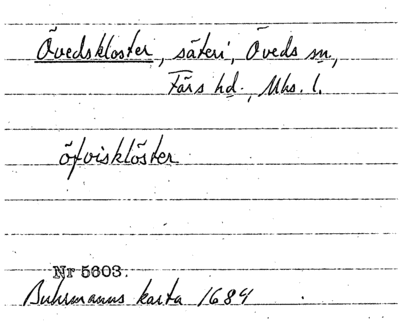 Övedskloster, säteri, Öveds sn,
Färs hd., Mhs. l.
öfvisklöster
Nr 5603.
Buhrmanns karta 1684